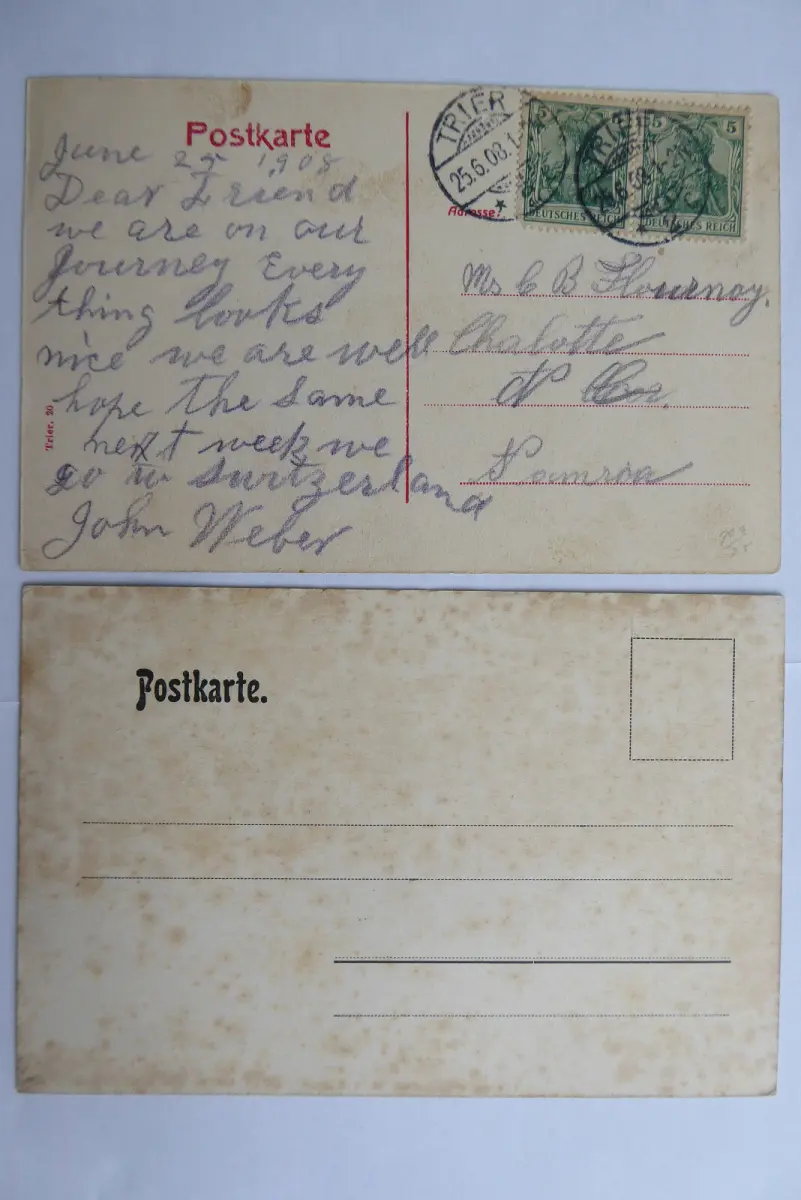 Postkarte
June 25 1908
Dear Friend
we are on our
Journey Every
thing looks
nice we are well
hope the same
next week we
go to Switzerland
John Weber
Trier. 20
TRIER
25.6.08.1
TRIER
5 5
DEUTSCHES REICH
DEUTSCHES REICH
Adresse:
Ms C B Flournoy,
Chalotte
N Car
Postkarte.